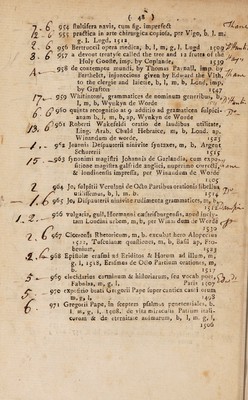 ( 42 )
7 - 6 954 stultifera navis, cum fig. imperfect
955 practica in arte chirurgica copiosa, per Vigo, b. l. m.
g. l. Lugd, 1518
2 - 6 956 Bertrucci opera medica, b, l, m, g, l Lugd 1509
957 a devout treatyse called the tree and 12 fruites of the
Holy Gooste, imp. by Coplande, 1539
958 de contemptu mundi, by Thomas Parnall, imp. by
Berthelet, injunccions given by Edward the VIth,
to the clergie and laietie, b, l, m, b, Lond, imp.
by Grafton 1547
17 - 959 Whittintoni, grammatices de nominum generibus, b,
l, m, b, Wynkyn de Worde
960 quinta recognitio at q additio ad gramatices sulpiti-
anam b, l, m, b, ap, Wynkyn de Worde
961 Roberti Wakefeldi oratio de laudibus utilitate,
Ling. Arab. Chald Hebraice, m, b, Lond. ap.
Winandum de worde,
962 Joannis Despauterii ninivitæ syntaxm, m, b, Argent
Schurerii 1515
15 - 963 synonimi magistri Johannis de Garlandia, cum expo-
sitione magistri galfride anglici, nuperrime correcti,
& londiensis impressa, per Winandum de Worde
964 Jo, sulpitii Verulani de Octo Partibus orationis libellus
utilissimus, b, l, m. b,
965 Jo, Despauterii ninivitæ rudimenta grammatices, m, b,
966 vulgaria, gulf, Hormanni cæsarisburgensis, apud incly-
tam Londini urbem, m, b, per Winandum de Worde
1530
2 - 6 967 Ciceronis Rhetoricum, m, b, excudit hero Alopecius
1521, Tusculanæ quæstiones, m, b, Basil ap, Fro-
benium, 1523
968 Epistolæ erasmi ad Eruditos & Horum ad illum, m,
g, l, 1518, Erasmus de Octo Partium orationes, m,
b, 1517
5 - 969 elucidarius carminum & historiarum, seu vocab poet,
Fabulas, m, g, l, Paris 1507
5 - 970 expositio beati Gregorii Pape super cantica canticorum
m, g, l, 1498
6 - 971 Gregorii Pape, in septem psalmos penetenciales, b.
l. m, g, l, 1508. de vita miraculis Patrum itali-
corum & de eternitate animarum, b, l, m, g, l,
1506